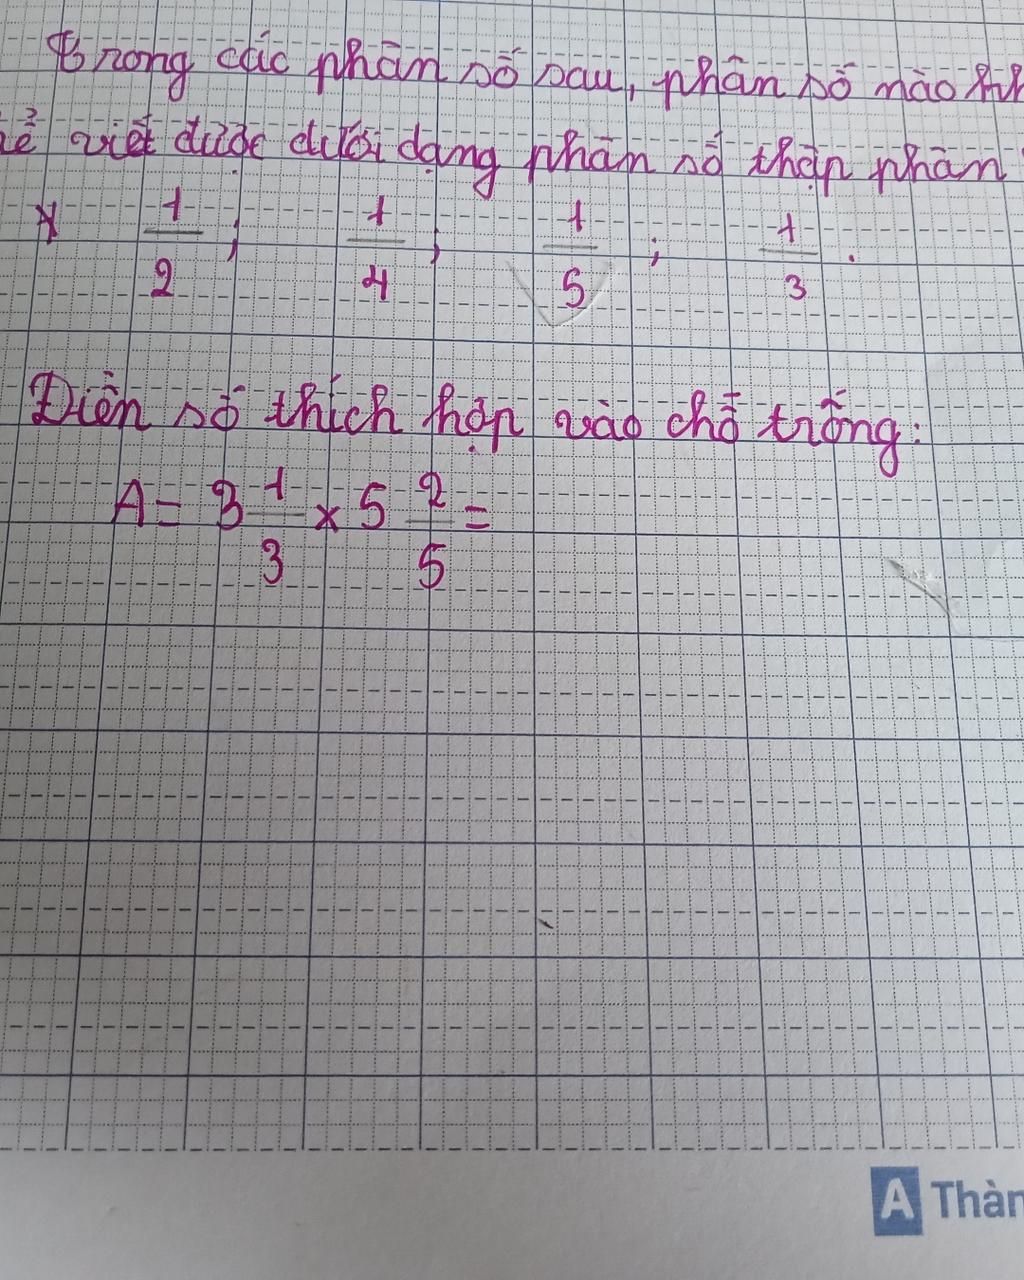 Trong các phân số sau, phân số nào th
ể viết được dưới dạng phân số thập phân
* 1/2 ; 1/4 ; 1/5 ; 1/3 .
Điền số thích hợp vào chỗ trống:
A = 3 1/3 × 5 2/5 =
A Thàn